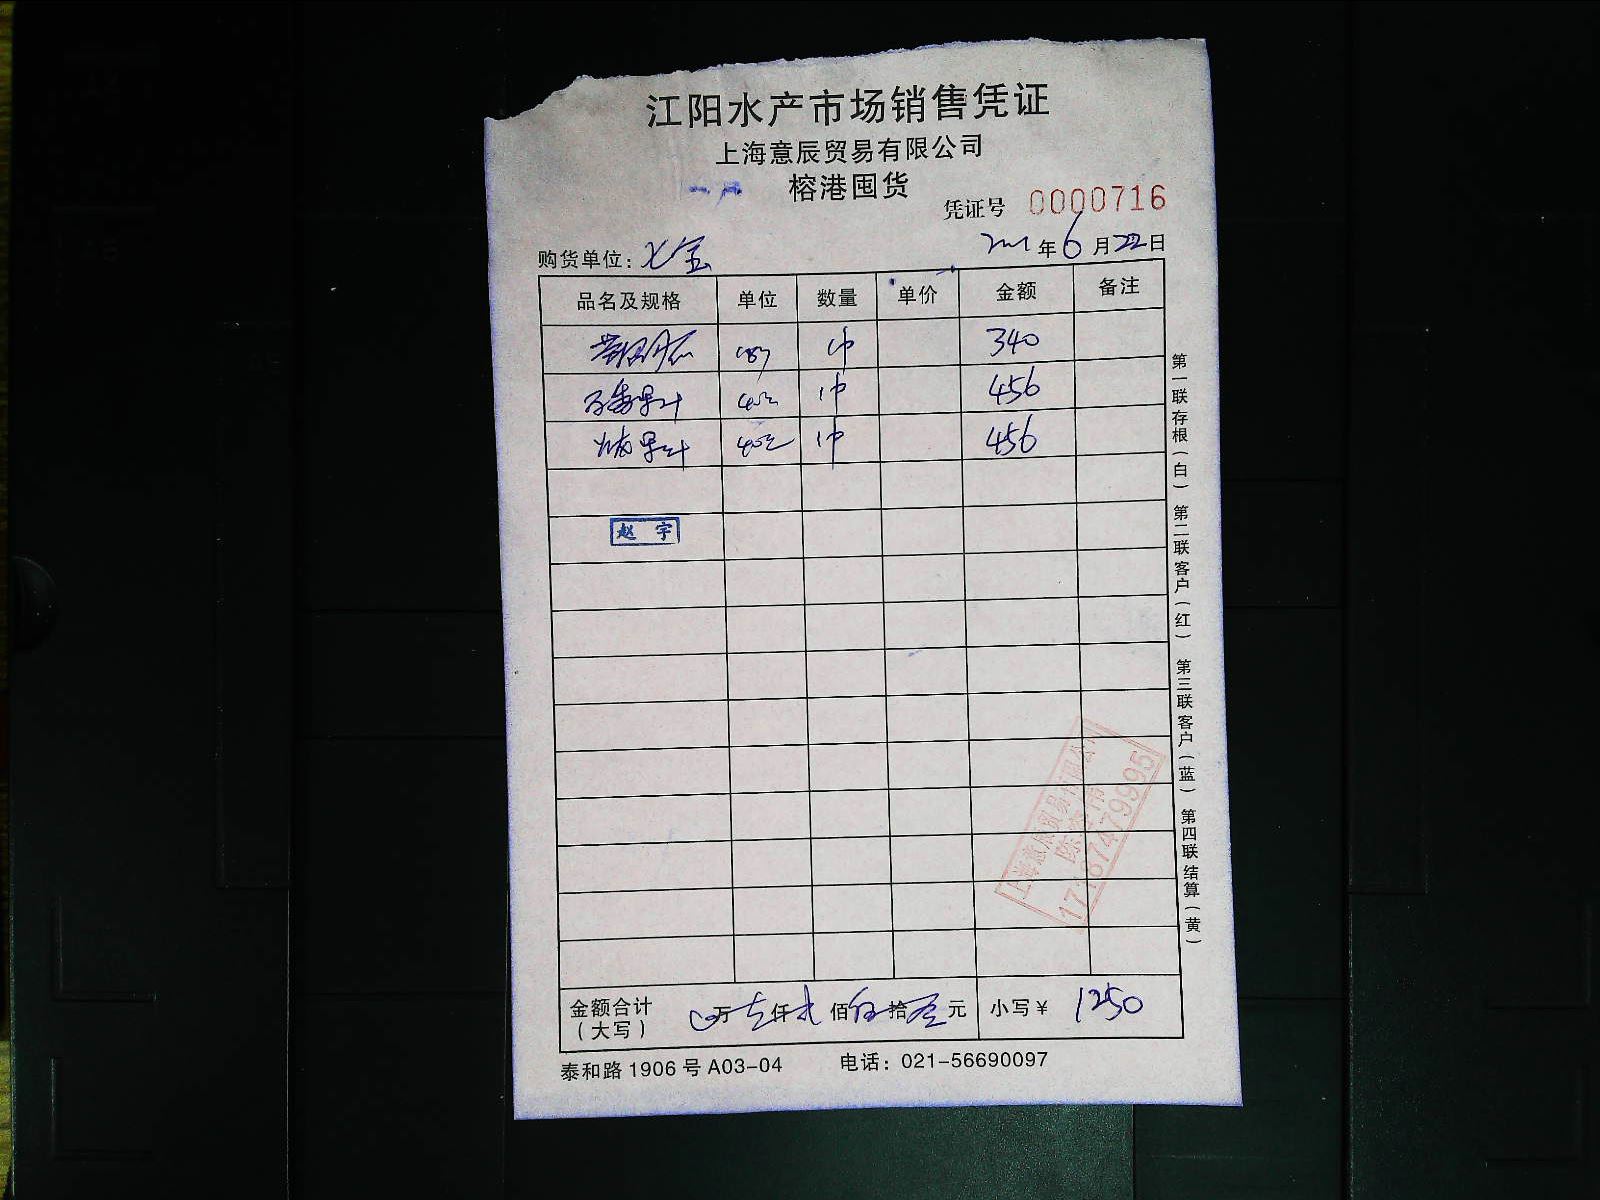 江阳水产市场销售凭证
上海意辰贸易有限公司
榕港囤货
凭证号 0000716
购货单位：七宝 2021年6月22日
品名及规格 单位 数量 单价 金额 备注
340
果汁 456
果汁 456
赵宇
上海意辰贸易有限公司
17167479995
金额合计（大写） 万 仟 佰 拾 元 小写￥ 1250
泰和路1906号A03-04 电话：021-56690097
第一联存根（白） 第二联客户（红） 第三联客户（蓝） 第四联结算（黄）